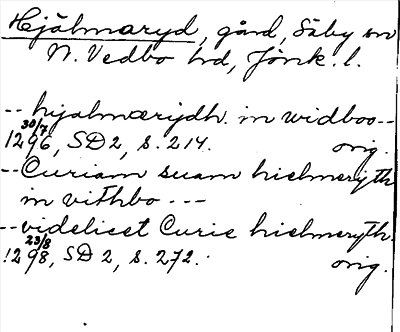 Hjälmaryd, gård, Säby sn
N. Vedbo hd, Jönk. l.
-- hjalmærijdh. in widboo --
1296 30/7, SD 2, s. 214. orig.
-- Curiam suam hielmeryth
in vithbo ---
-- videlicet Curie hielmeryth.
1298 23/8, SD 2, s. 272. orig.